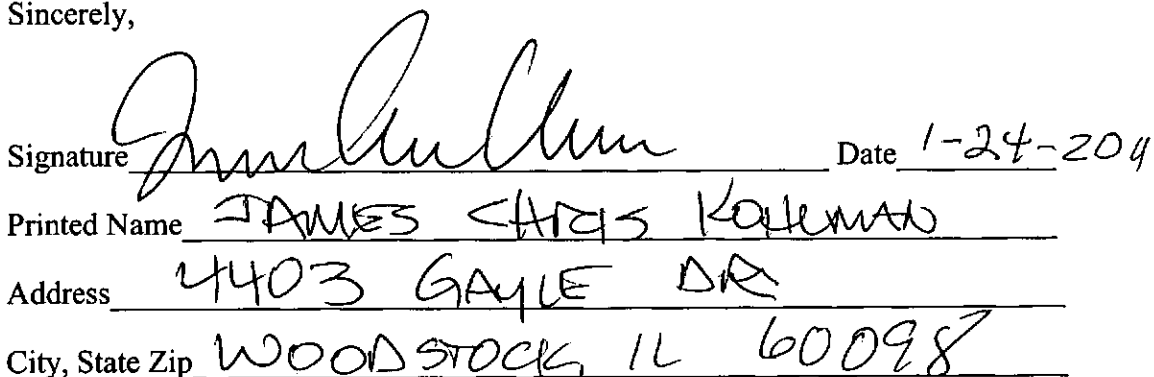 Sincerely,
Signature Date 1-24-2011
Printed Name JAMES CHRIS KOHLMAN
Address 4403 GAYLE DR
City, State Zip WOODSTOCK IL 60098